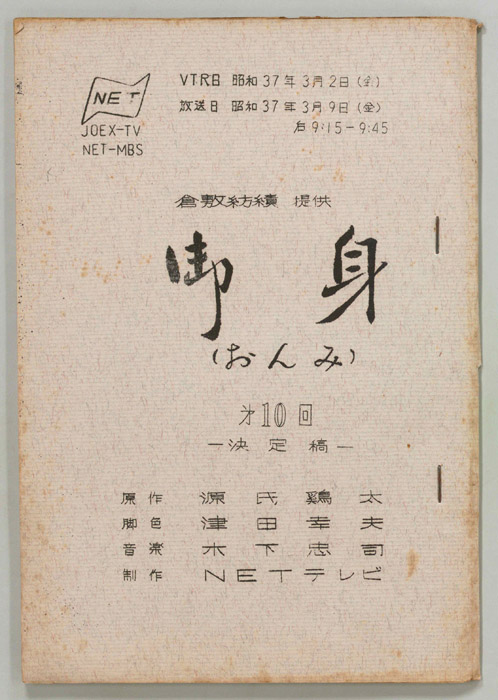 NET
JOEX-TV
NET-MBS
VTR日 昭和37年3月2日(金)
放送日 昭和37年3月9日(金)
后9:15-9:45
倉敷紡績 提供
御身
(おんみ)
第10回
-決定稿-
原作 源氏鶏太
脚色 津田幸夫
音楽 木下忠司
制作 NETテレビ